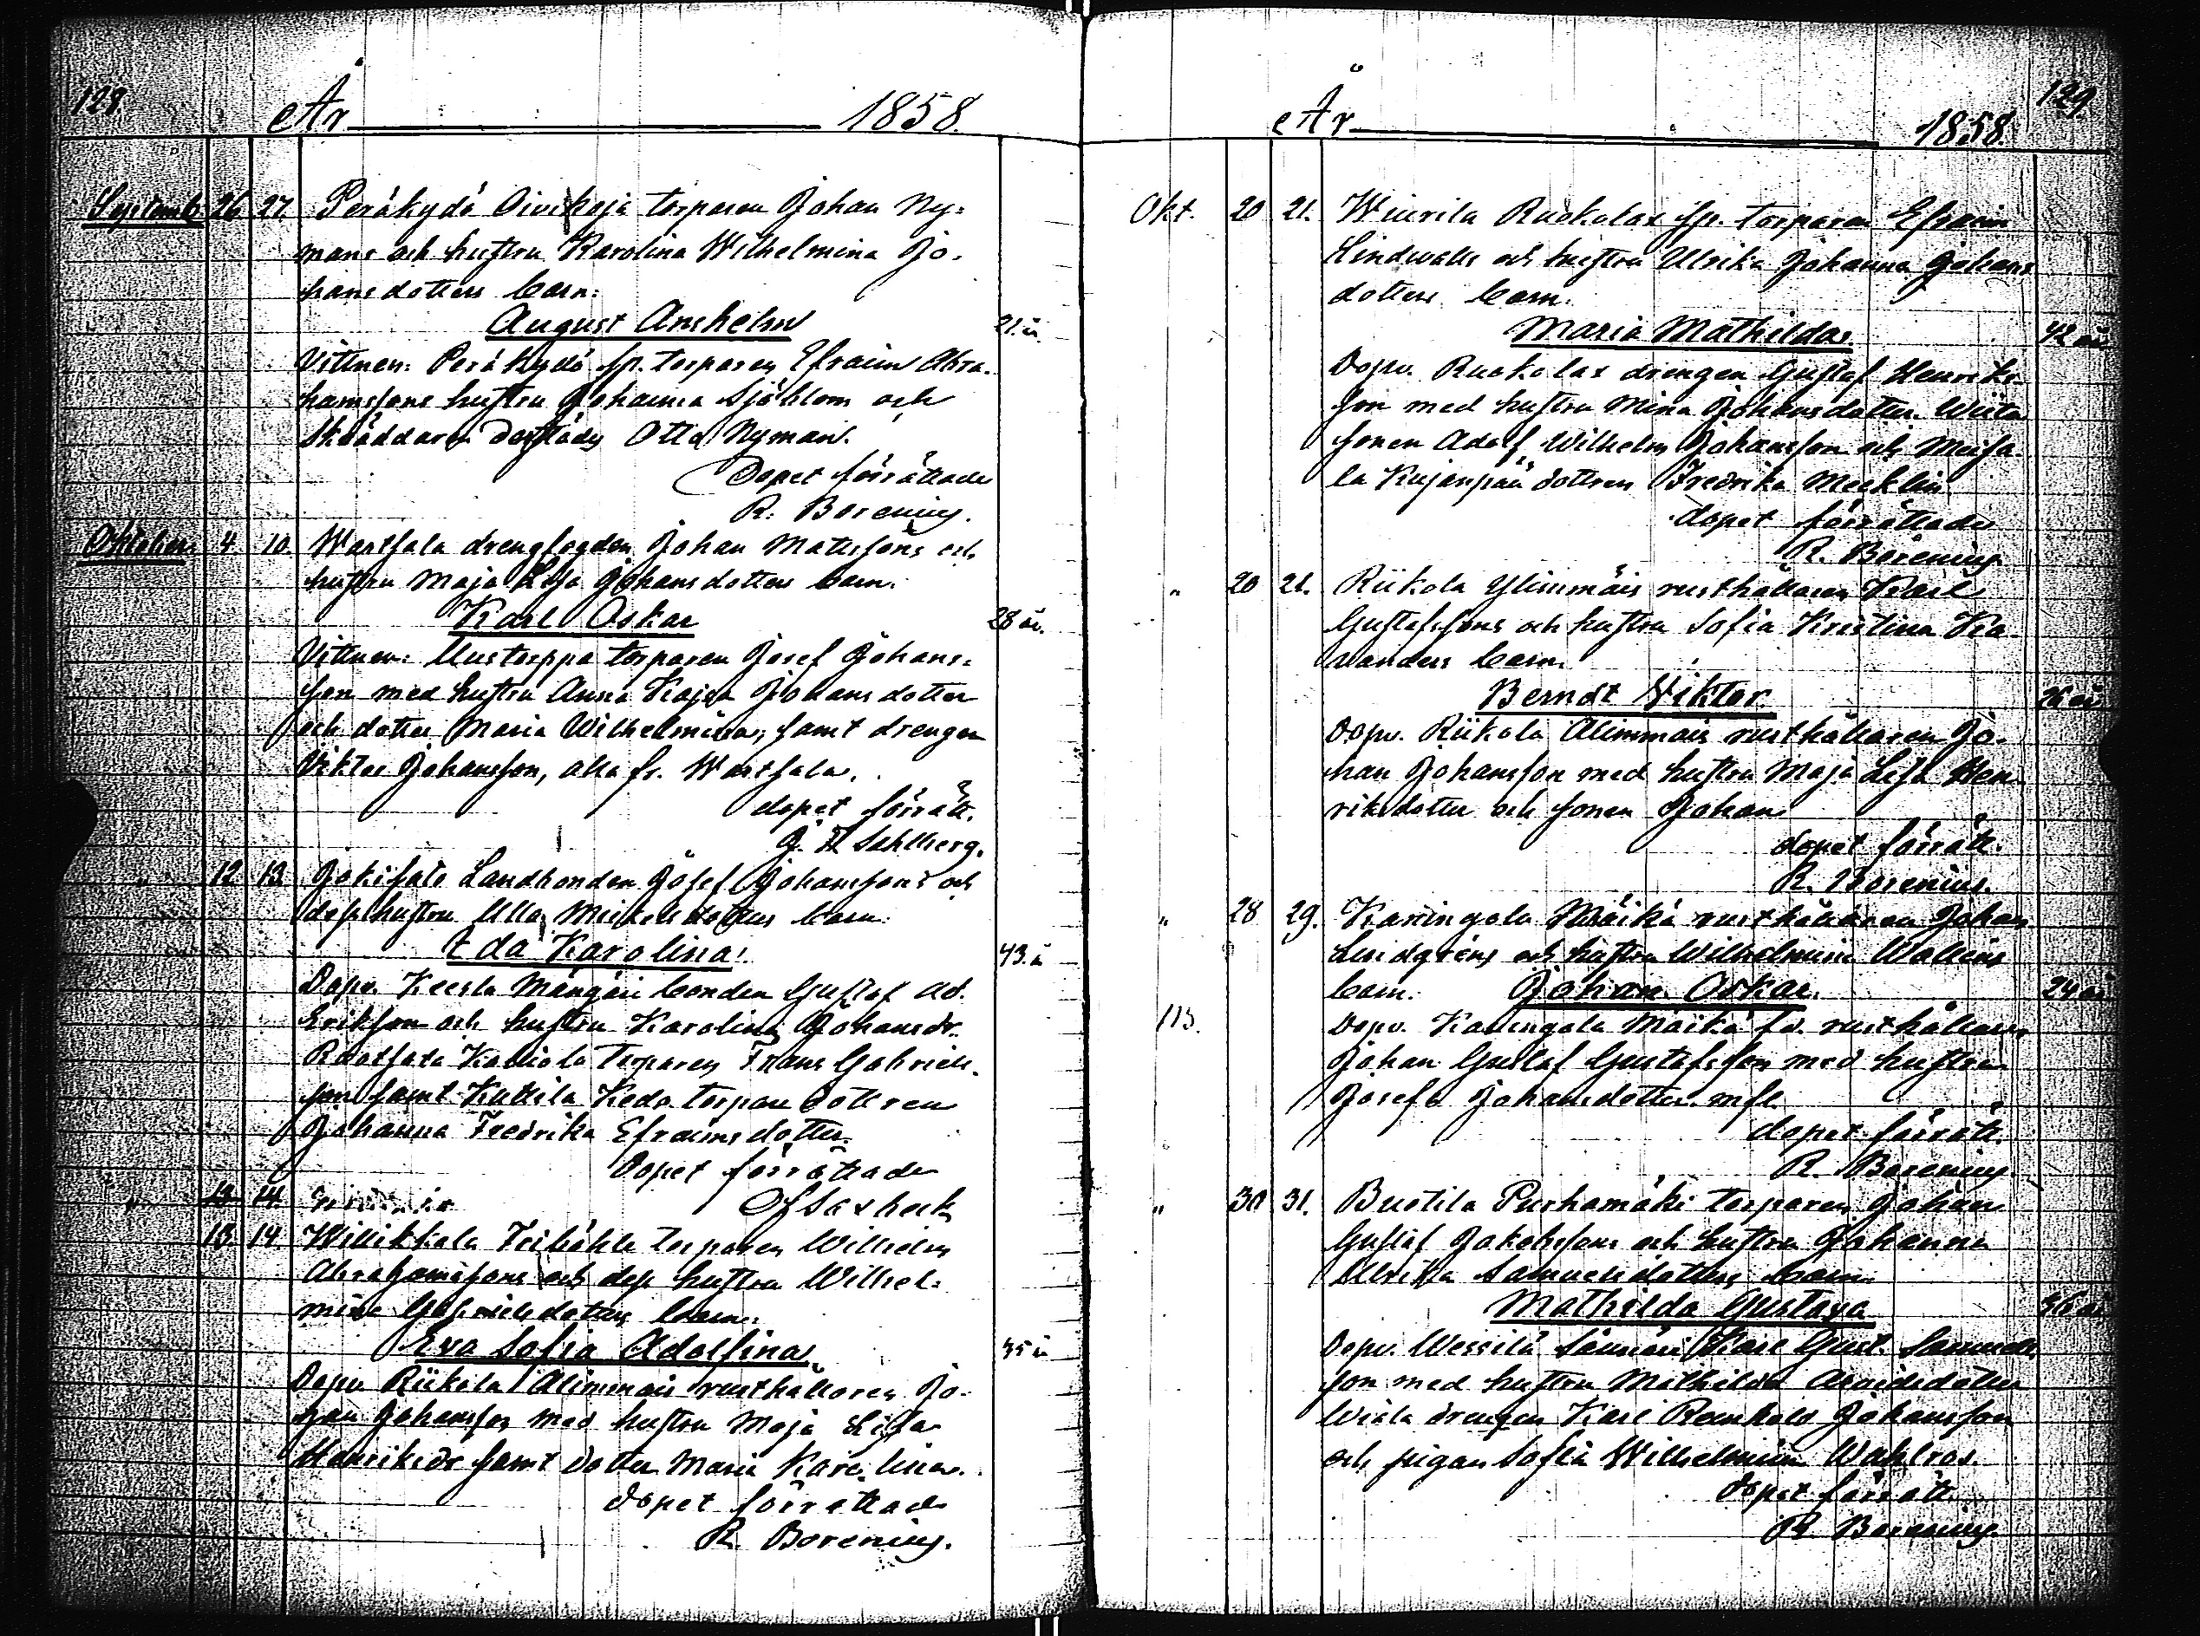 128.
År 1858.
Septemb. 26 27. Peräkydö Oivikoja torparen Johan Ny-
mans och hustru Karolina Wilhelmina Jo-
hansdotters barn:
August Anshelm 21 år
Vittnen: Peräkydö sp. torparen Efraim Abra-
hamssons hustru Johanna Sjöblom och
Skräddaren Otto Nyman.
Dopet förrättade
R. Borenius.
Oktober 4 10 Wartsala drengfogden Johan Matssons och
hustru Maja Lisa Johansdotters barn.
Karl Oskar 28 år.
Vittnen: Uustorppa torparen Josef Johans-
son med hustru Anna Kajsa Johansdotter
och dotter Maria Wilhelmina, samt drengen
Viktor Johansson, alla fr. Wartsala.
dopet förrätt.
J. H. Sahlberg.
" 12 13 Jokisato Landbonden Josef Johanssons och
dess hustru Ulla Mickelsdotters barn.
Ida Karolina. 43 å
Dopv. Keesla Mängäri bonden Gustaf Ad.
Erikson och hustru Karolina Johansdr.
Kaniola Torparen Frans Gabriels-
son samt Kuttila Kedo torpare dottren
Johanna Fredrika Efraimsdotter.
Dopet förrättade
" 13 14.
13 14 Willikkala torparen Wilhelm
Abrahamssons och dess hustru Wilhel-
mina Gabrielsdotters barn.
Eva Sofia Adolfina 35 å
Dopv. Riikola Alimmais rusthållaren Jo-
han Johansson med hustru Maja Lisa
Henriksdr samt dotter Maria Karolina.
dopet förrättade
R. Borenius.
129.
År 1858.
Okt. 20 21. Winrila Ruokolax sp. torparen Efraim
Lindwalls och hustru Ulrika Johanna Johans
dotters barn.
Maria Mathilda. 42 år
Dopv. Ruokolax drengen Gustaf Henriks-
son med hustru Mina Johansdotter. Wiita
sonen Adolf Wilhelm Johansson och Meisa-
la Kujanpää dottren Fredrika Mecklin
dopet förrättade
R. Borenius
" 20 21. Riikola Ylimmäis rusthållaren Karl
Gustafssons och hustru Sofia Kristina Ka-
vanders barn.
Berndt Viktor. 26 år
Dopv. Riikola Alimmais rusthållaren Jo-
han Johansson med hustru Maja Lisa Hen-
riksdotter och sonen Johan
dopet förrätt.
R. Borenius.
" 28 29. Kaningola Mäikä rusthållaren Johan
Lindgrens och hustru Wilhelmina Wallins
barn. Johan Oskar. 24 år
113. Dopv. Kaningola Mäikä fd. rusthållaren
Johan Gustaf Gustafsson med hustru
Josefa Johansdotter. mfl.
dopet förrätt.
R. Borenius
" 30 31. Buotila Purhamäki torparen Johan
Gustaf Jakobssons och hustru Johanna
Ulrika Samuelsdotters barn.
Mathilda Gustava 36 år
Dopv. Wessilä Karl Gust. Samuels-
son med hustru Mathilda Arvidsdotter
drengen Karl Reinhold Johansson
och pigan Sofia Wilhelmina Wahlros.
Dopet förrätt.
R. Borenius